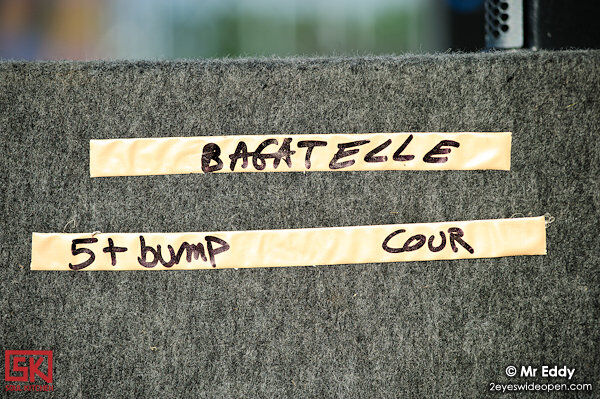 BAGATELLE
5+ bump COUR
SK
© Mr Eddy
2eyeswideopen.com